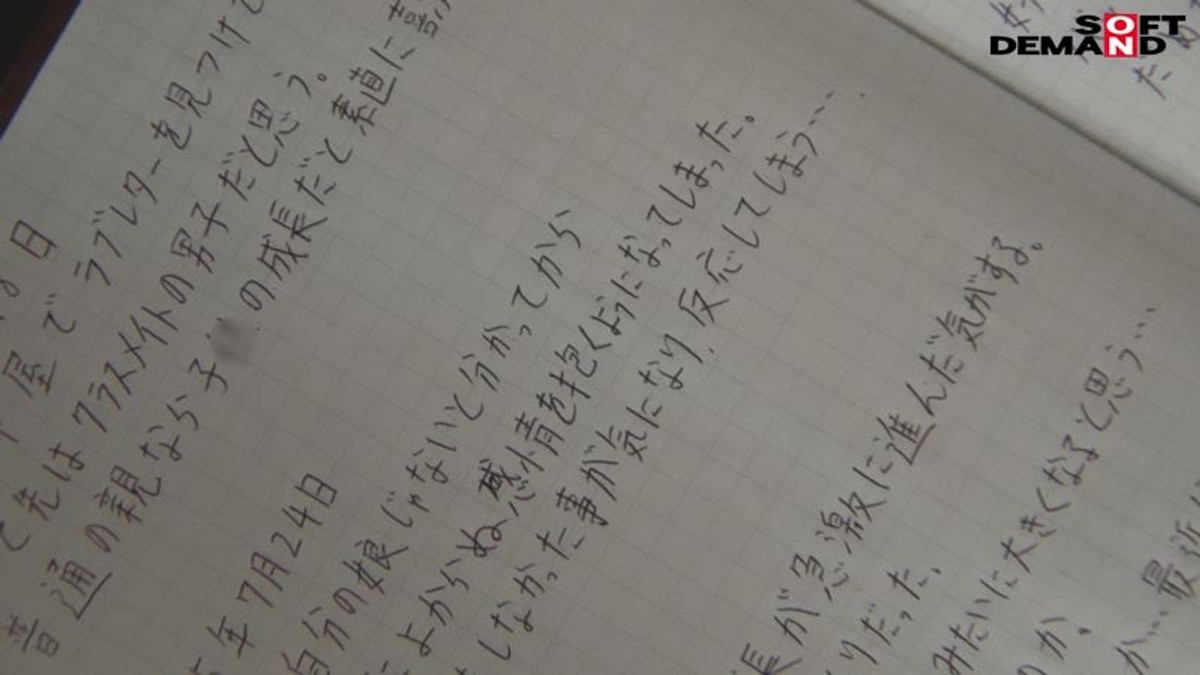 SOFT
DEMAND
日
屋でラブレターを見つけて
先はクラスメイトの男子だと思う。
普通の親なら子の成長だと素直に
年7月24日
自分の娘じゃないと分かってから
よからぬ感情を抱くようになってしまった。
しなかった事が気になり反応してしまう…
長が急激に進んだ気がする。
りだった。
みたいに大きくなると思う…
のか。
か…最近